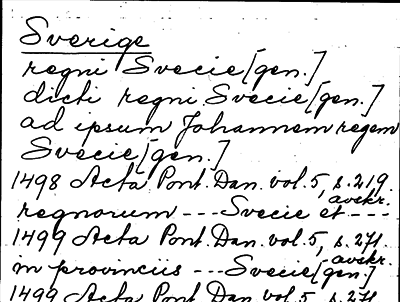 Sverige
regni Svecie [gen.]
dicti regni Svecie [gen.]
ad ipsum Johannem regem
Svecie [gen.]
1498 Acta Pont. Dan. vol. 5, s. 219
avskr.
regnorum --- Svecie et ---
1499 Acta Pont. Dan. vol. 5, s. 271
avskr.
in provinciis --- Svecie [gen.]
1499 Acta Pont. Dan. vol. 5, s. 271